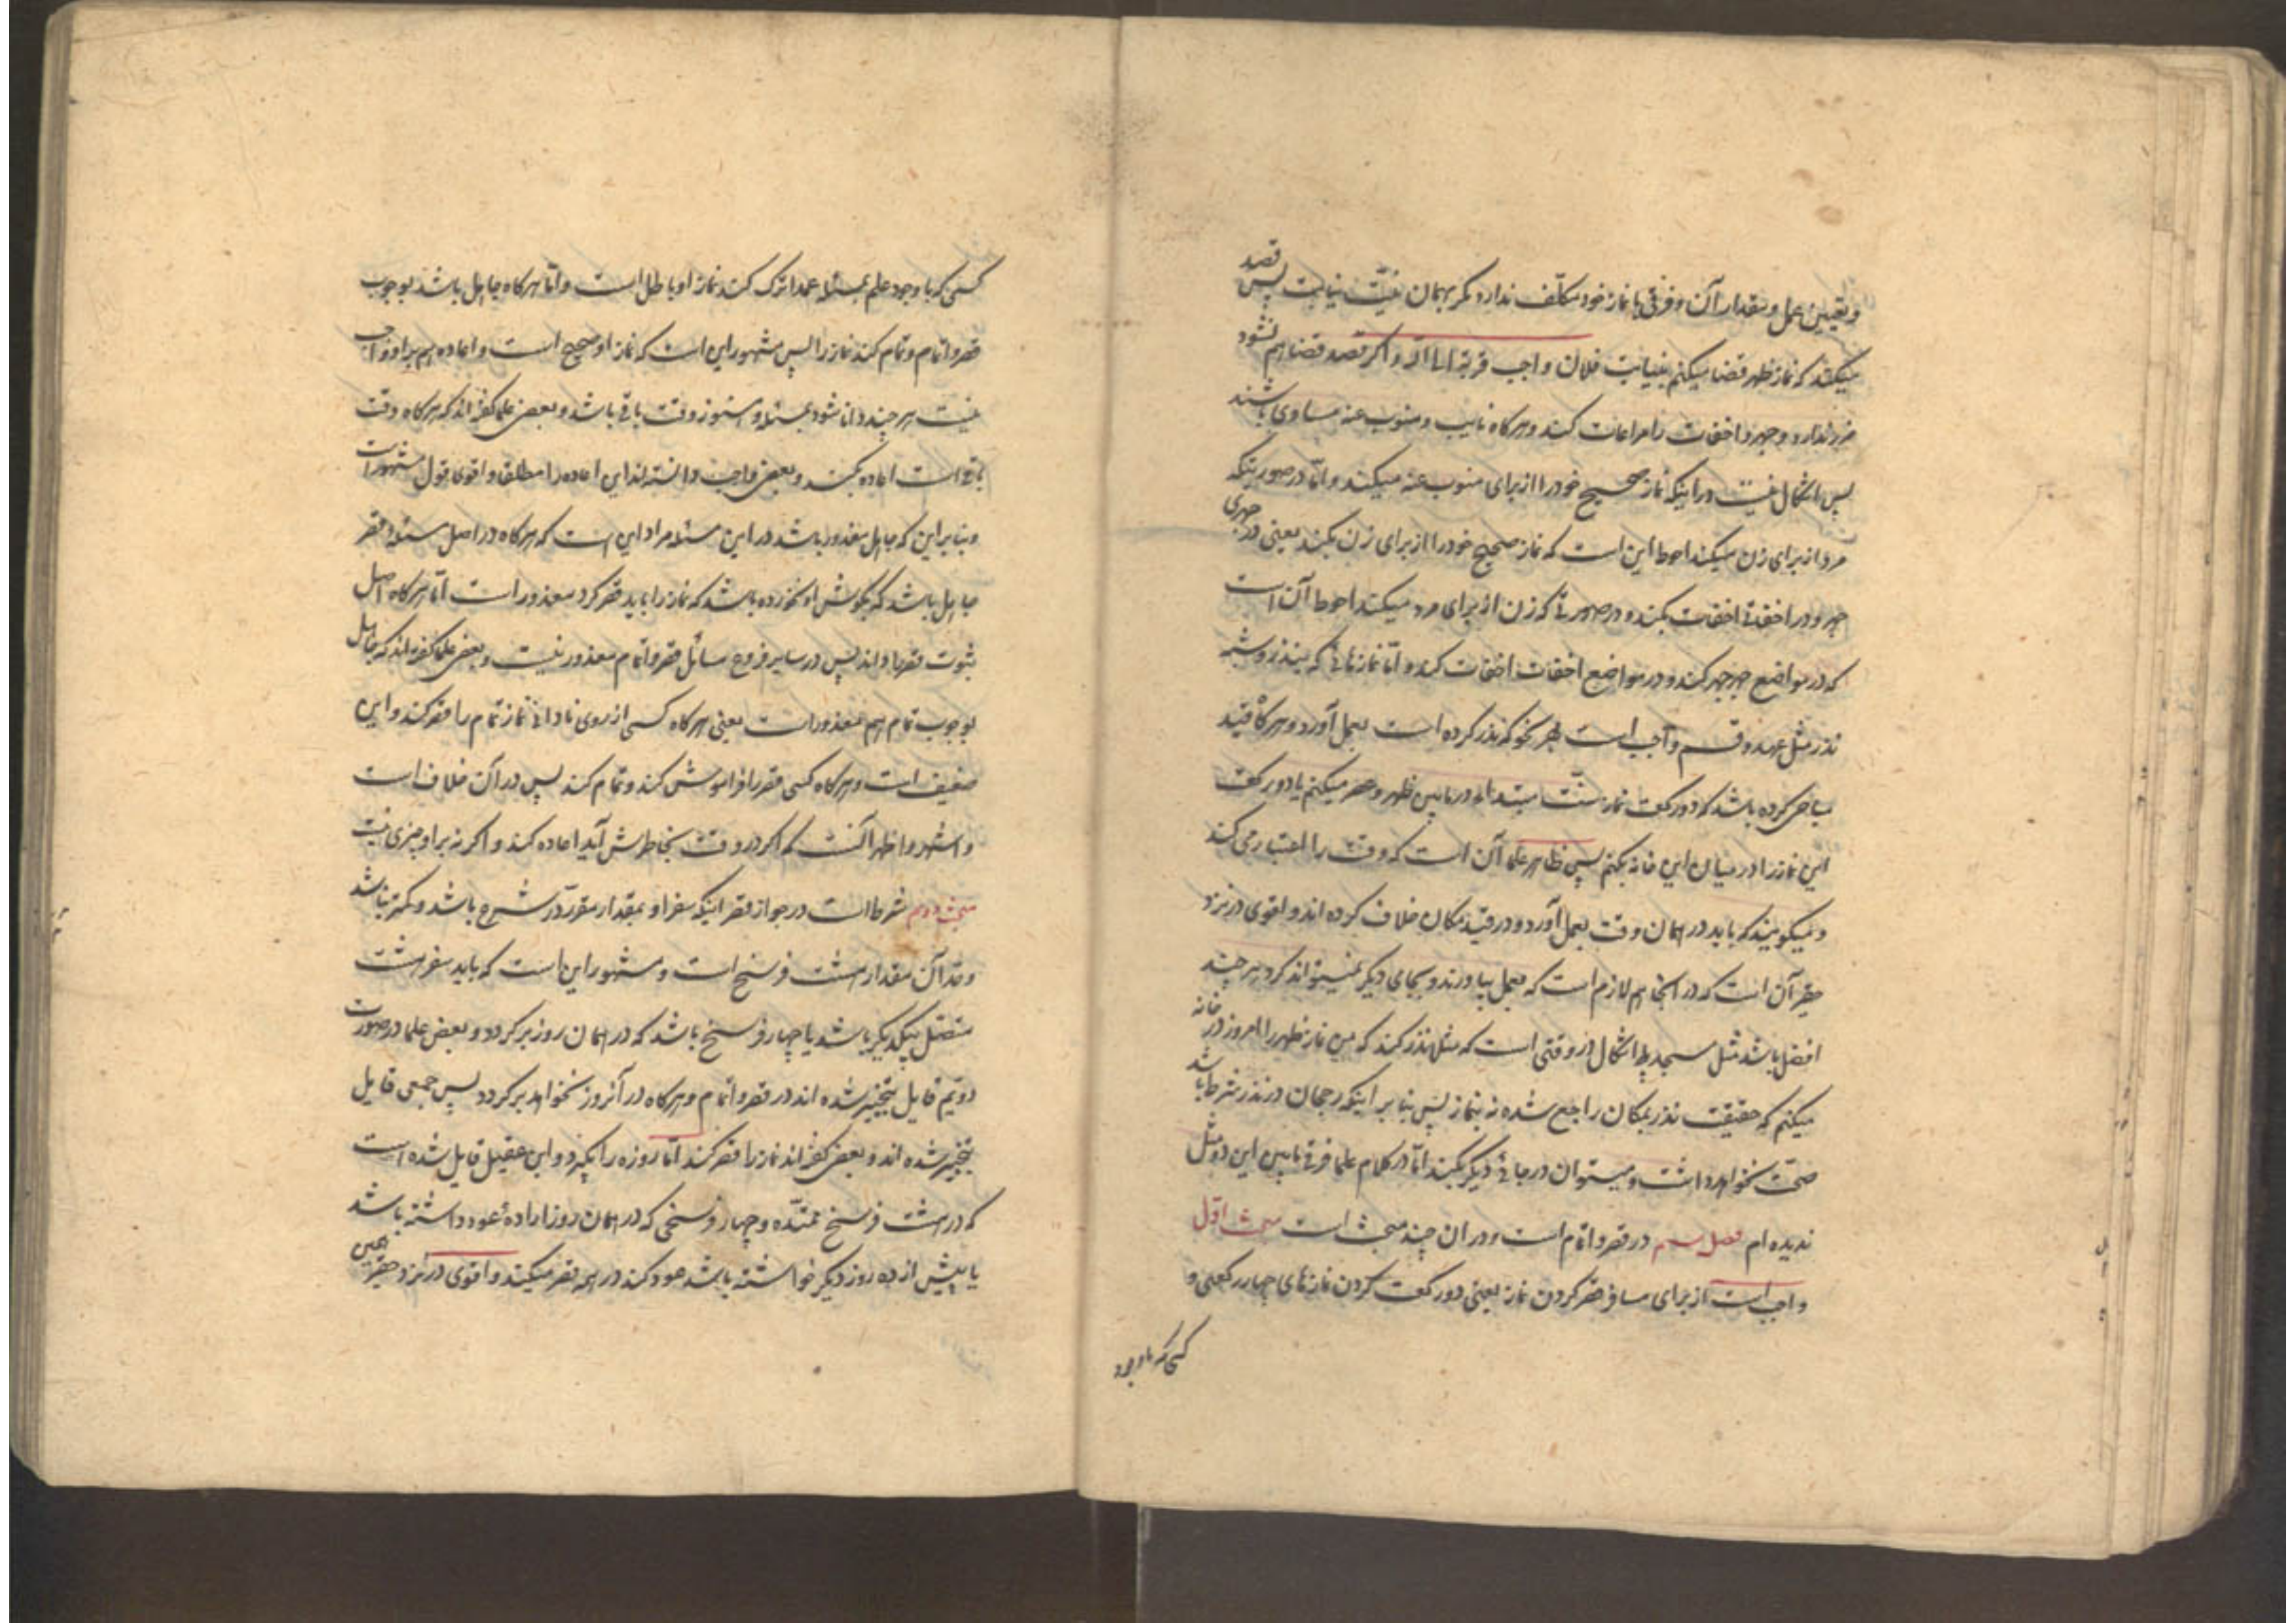 و تعیین عمل و مقدار آن و فرقی با نماز خود مکلف ندارد مگر بهمان نیّت نیابت پس قصد
میکند که نماز ظهر قضا میکنم بنیابت فلان واجب قربة الی الله و اگر قصد قضا هم نشود
ضرر ندارد و جهر و اخفات را مراعات کند و هرگاه نایب و منوب عنه مساوی باشند
پس اشکال نیست در اینکه نماز صحیح خود را از برای منوب عنه میکند و امّا در صورتیکه
مرد از برای زن میکند احوط این است که نماز صحیح خود را از برای زن بکند یعنی در جهری
جهر و در اخفاتی اخفات بکند و در صورتی که زن از برای مرد میکند احوط آن است
که در مواضع جهر جهر کند و در مواضع اخفات اخفات کند و امّا نمازهائی که بنذر و شبه
نذر مثل عهد و قسم واجب است بهر نحو که نذر کرده است بعمل آورد و هرگاه قید
مباحی کرده باشد که دو رکعت نماز سنّت مبتداء در مابین ظهر و عصر میکنم یا دو رکعت
این نماز را در میان این خانه بکنم پس ظاهر علما آن است که وقت را اعتبار می کند
و میگویند که باید در همان وقت بعمل آورد و در قید مکان خلاف کرده اند و اقوی در نزد
حقیر آن است که در آنجا هم لازم است که بعمل بیاورند و بجای دیگر نمیتواند کرد هر چند
افضل باشد مثل مسجد بلی اشکال در وقتی است که مثلا نذر کند که من نماز ظهر را امروز در خانه
میکنم که حقیقت نذر بمکان راجع شده نه بنماز پس بنا بر اینکه رجحان در نذر شرط باشد
صحّت نخواهد داشت و میتوان در جائی دیگر بکند امّا در کلام علما فرقی مابین این دو مثل
ندیده ام فصل سیم در قصر و اتمام است و در ان چند مبحث است مبحث اوّل
واجب است از برای مسافر قصر کردن نماز یعنی دو رکعت کردن نمازهای چهار رکعتی و
کسی که با وجود
کسی که با وجود علم بمسئله عمدا ترک کند نماز او باطل است و امّا هرگاه جاهل باشد بوجوب
قصر و اتمام و تمام کند نماز را پس مشهور این است که نماز او صحیح است و اعاده هم بر او واجب
نیست هر چند دانا شود بمسئله و هنوز وقت باقی باشد و بعضی علما گفته اند که هرگاه وقت
باقی است اعاده بکند و بعضی واجب دانسته اند این اعاده را مطلقا و اقوی قول مشهور است
و بنا بر این که جاهل معذور باشد در این مسئله مراد این است که هرگاه در اصل مسئله قصر
جاهل باشد که بگوش او نخورده باشد که نماز را باید قصر کرد معذور است امّا هرگاه اصل
ثبوت قصر را داند پس در سایر فروع مسائل قصر و اتمام معذور نیست و بعضی علما گفته اند که جاهل
بوجوب تمام هم معذور است یعنی هرگاه کسی از روی نادانی نماز تمام را قصر کند و این
ضعیف است و هرگاه کسی قصر را فراموش کند و تمام کند پس در آن خلاف است
و اشهر و اظهر آنست که اگر در وقت بخاطرش آید اعاده کند و اگر نه بر او چیزی نیست
مبحث دویم شرط است در جواز قصر اینکه سفر او بمقدار مقرّر در شرع باشد و کمتر نباشد
و قدر آن مقدار هشت فرسخ است و مشهور این است که باید سفر هشت
متصّل بیکدیگر باشد یا چهار فرسخ باشد که در همان روز برگردد و بعض علما در صورت
دویّم قایل بتخییر شده اند در قصر و اتمام و هرگاه در آنروز نخواهد برگردد پس جمعی قایل
بتخییر شده اند و بعضی گفته اند نماز را قصر کند امّا روزه را بگیرد و ابن عقیل قایل شده است
که در هشت فرسخ ممتدّه و چهار فرسخی که در همان روز اراده عود داشته باشد
یا پیش از ده روز دیگر خواسته باشد عود کند در همه قصر میکند و اقوی در نزد حقیر همین